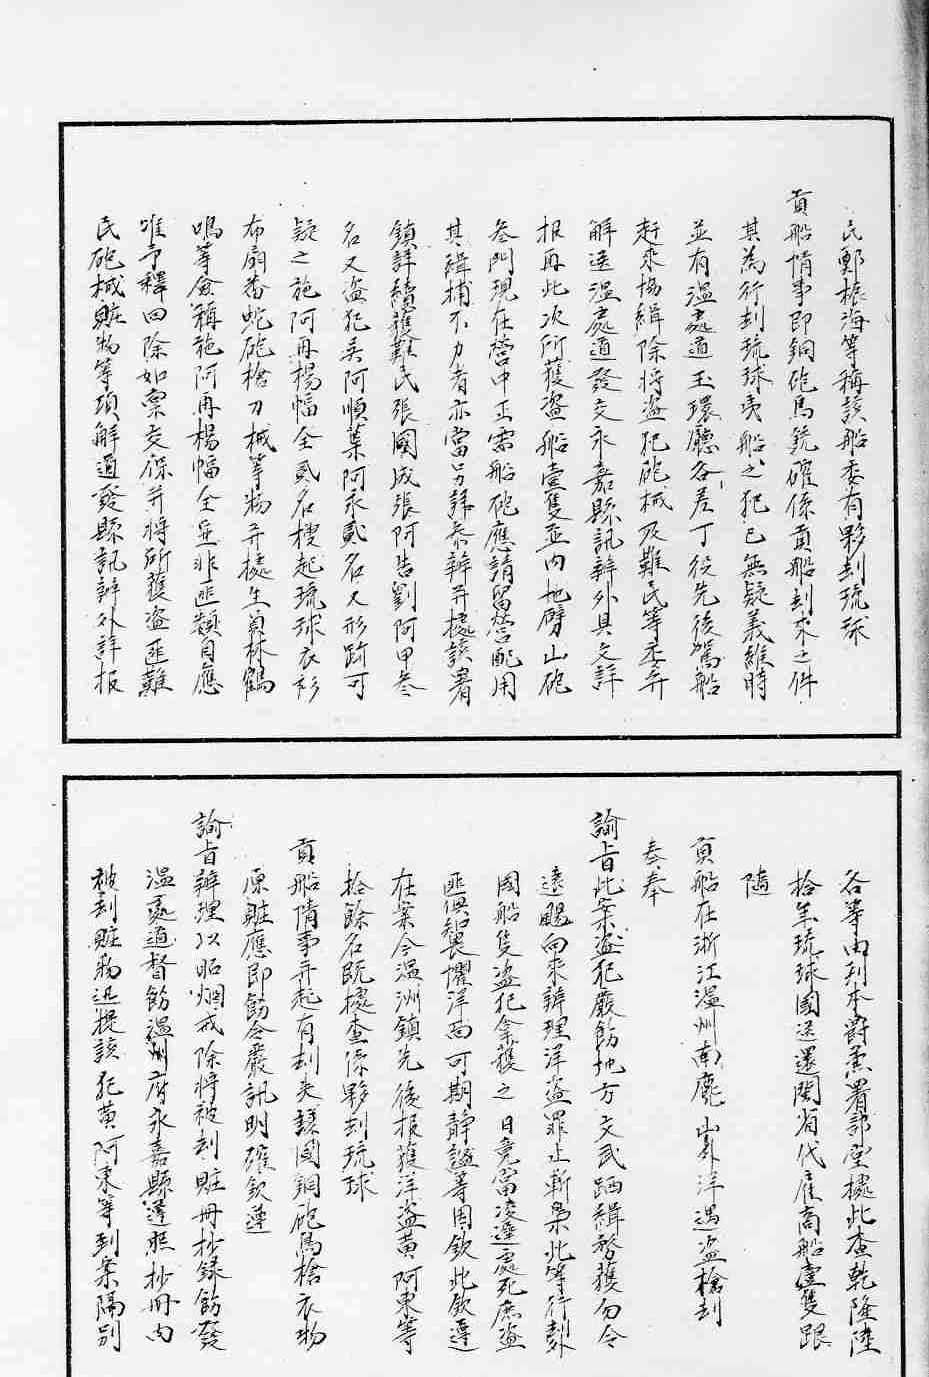 民鄭振海等稱該船委有夥刦琉球
貢船情事即銅砲鳥銃確係貢船刦來之件
其為行刦琉球夷船之犯已無疑義維時
並有溫處道玉環廳各差丁役先後駕船
赶來協緝除將盗犯砲械及難民等丞弁
解送溫處道發交永嘉縣訊辦外具文詳
报再此次所獲盗船壹隻並內地劈山砲
叁門現在營中正需船砲應請留營配用
其緝捕不力者亦當另詳叅辦并據該署
鎮詳續獲難民張國成張阿告劉阿甲叁
名又盗犯吴阿順葉阿永貳名又形跡可
疑之施阿再楊幅全貳名搜起琉球衣衫
布扇香蛇砲槍刀械等物并據生員林鶴
鳴等僉稱施阿再楊幅全並非匪類自應
准予釋回除如禀交保并將所獲盗匪難
民砲械賍物等項解道發縣訊辦外詳报
各等由到本爵
署部堂據此查乾隆陸
拾年琉球國送還閩省代雇商船壹隻跟
隨
貢船在浙江溫州南麂山外洋遇盗槍刦
奏奉
諭旨此案盗犯嚴飭地方文武跴緝務獲勿令
遠颺向來辦理洋盗罪止斬梟此等行刦外
國船隻盗犯拿獲之日竟當凌遲處死庶盗
匪共知讋懼洋面可期靜謐等因欽此欽遵
在案今溫州鎮先後报獲洋盗黄阿東等
拾餘名既據查係夥刦琉球
貢船情事并起有刦失該國銅砲鳥槍衣物
原賍應即飭令嚴訊明確欽遵
諭旨辦理以昭烱戒除將被刦賍冊抄録飭發
溫處道督飭溫州府永嘉縣遵照抄冊內
被刦賍物迅提該犯黄阿東等到案隔別